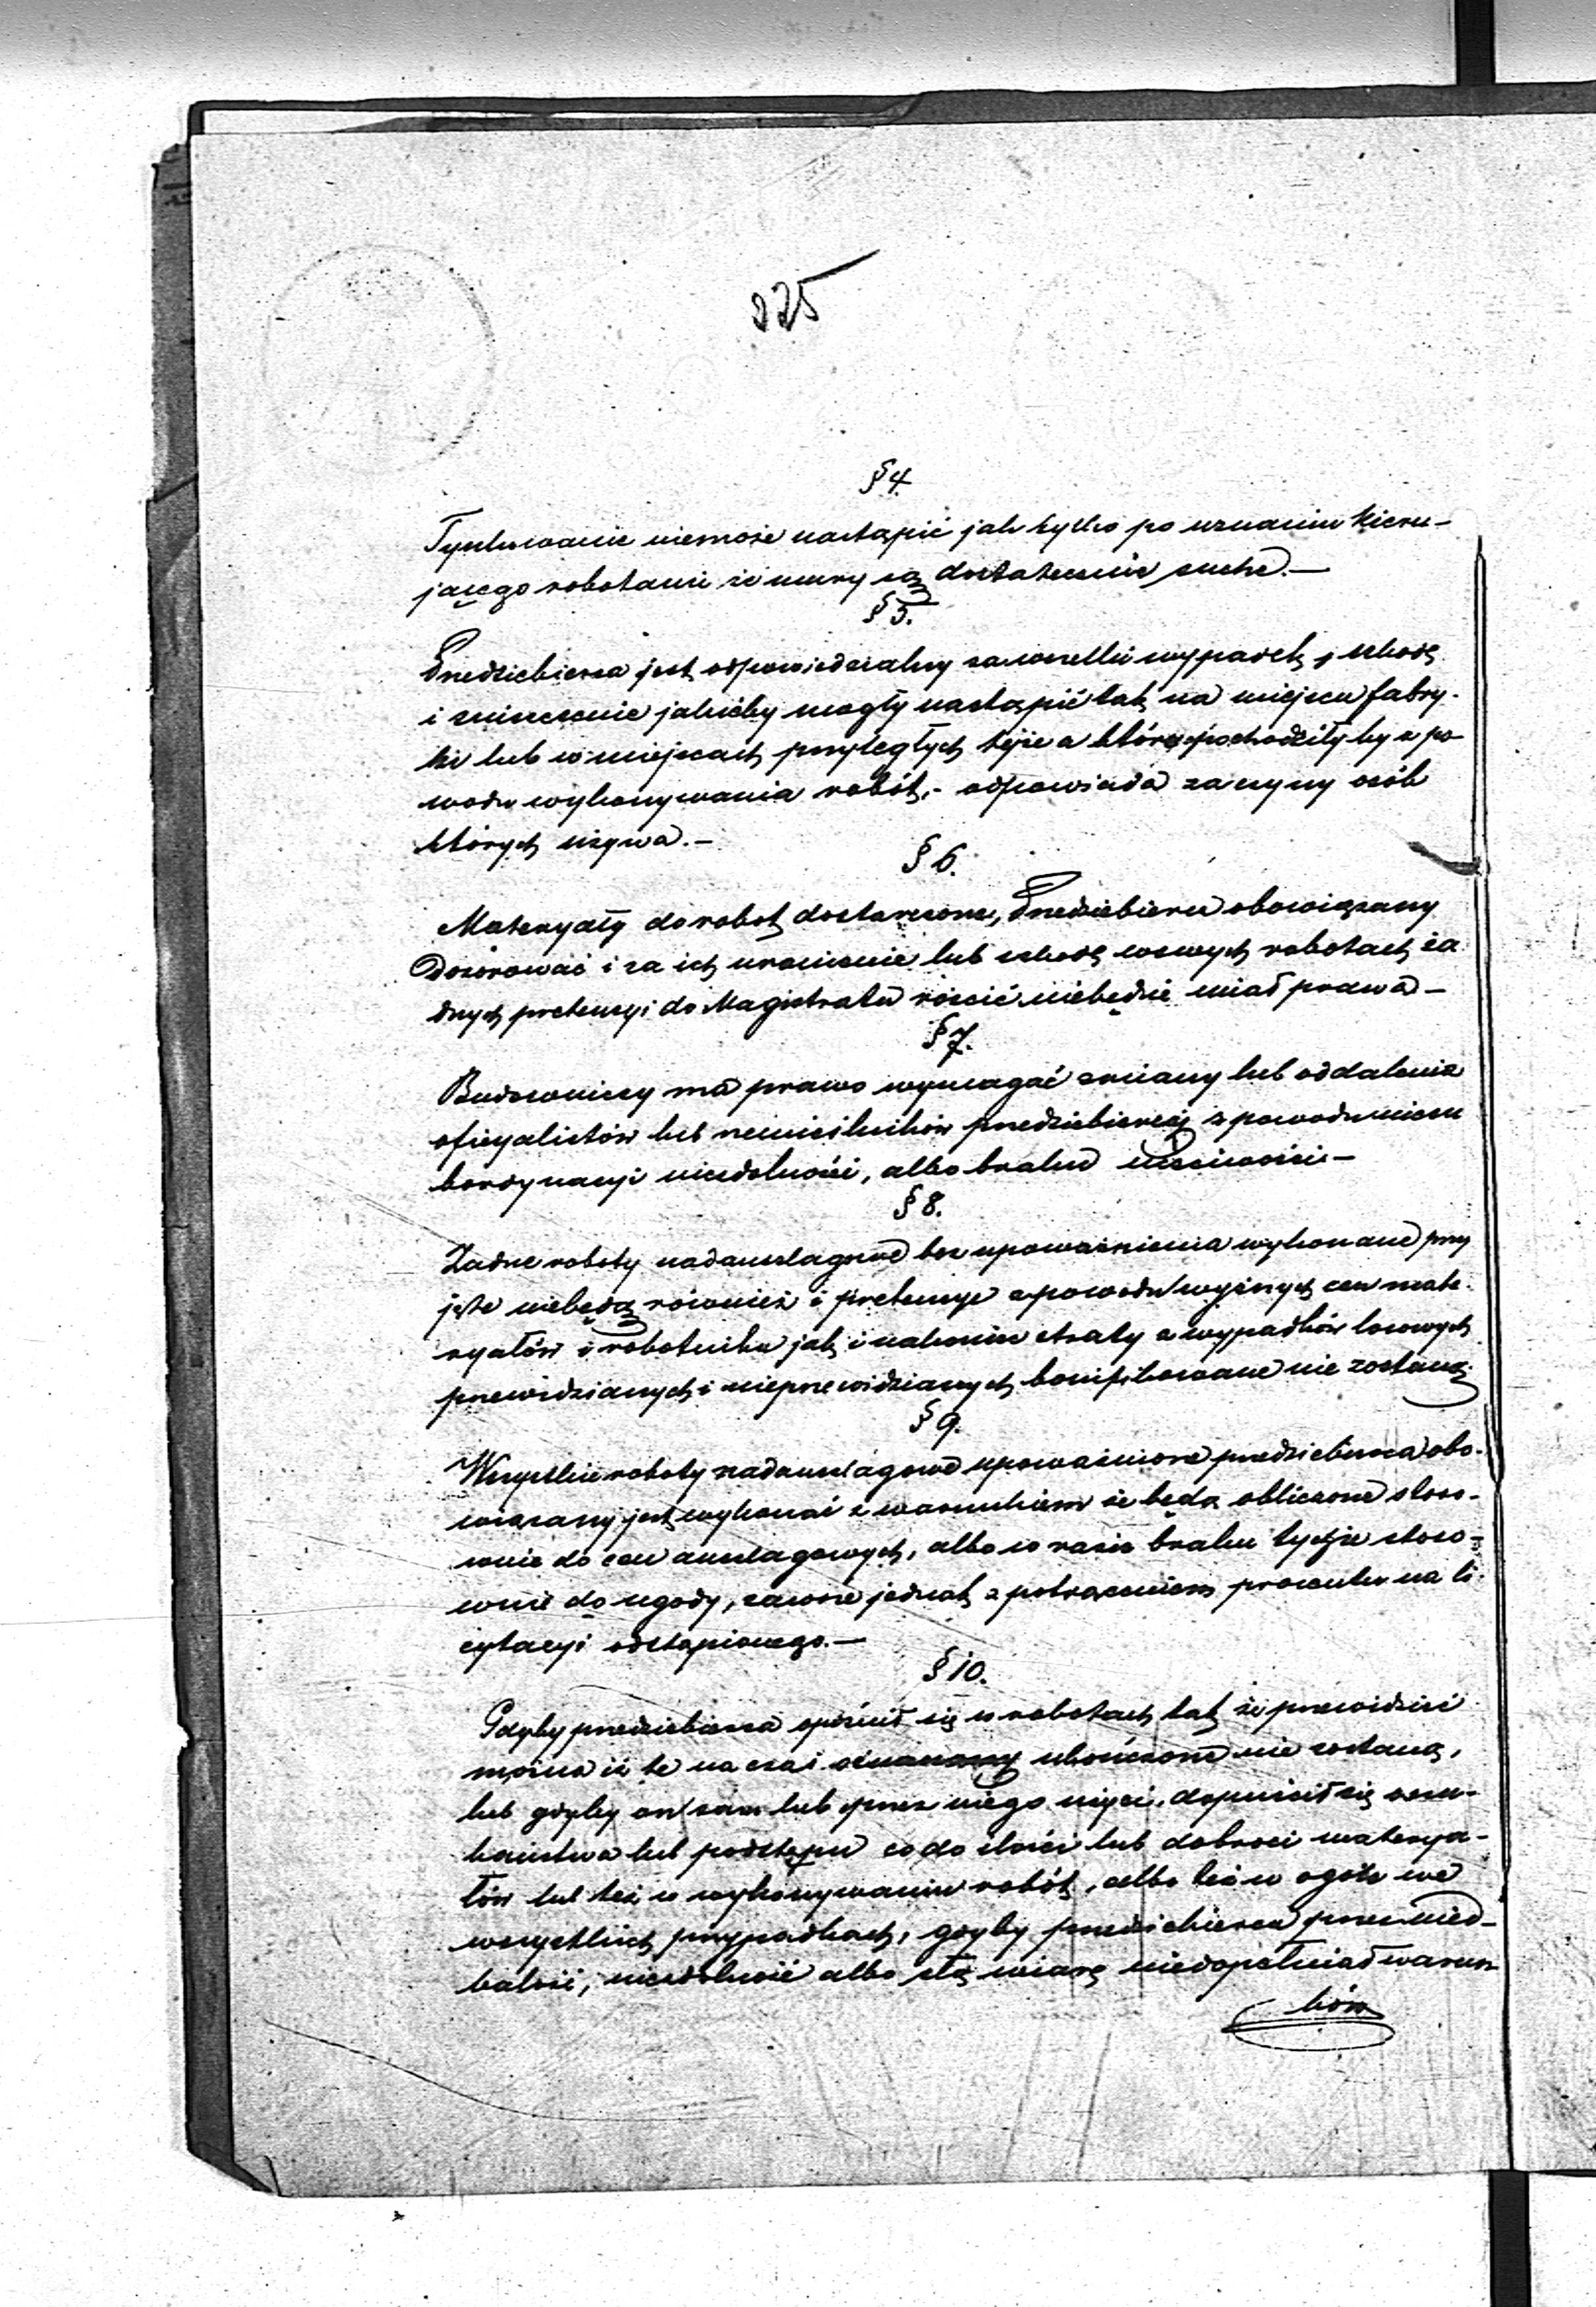 225
§ 4.
Tynkowanie niemoże nastąpić jak tylko po uznaniu kieru-
jącego robotami że mury są dostatecznie suche.—
§ 5.
Przedsiębierca jest odpowiedzialny za wszelki wypadek, szkodę
i zniszczenie jakieby mogły nastąpić tak na miejscu fabry-
ki lub w miejscach przyległych tejże a które pochodziłyby z po-
wodu wykonywania robót,- odpowiada za czyny osób
których używa.—
§ 6.
Materyały do robot dostarczone, Przedsiębierca obowiązany
dozorować i za ich uronienie lub szkodę w swych robotach ża
dnych pretensyi do Magistratu rościć niebędzie miał prawa—
§ 7.
Budowniczy ma prawo wymagać zmiany lub oddalenia
oficyalistów lub rzemieślników przedsiębiercy z powodu niesu
bordynacyi niezdolności, albo braku uczciwości—
§ 8.
Żadne roboty nadanszlagowe bez upoważnienia wykonane przy
jęte niebędą również i pretensye z powodu wyższych cen mate-
ryałów i robotnika jak i nakoniec straty z wypadków losowych
przewidzianych i nieprzewidzianych bonifikowane nie zostaną.
§ 9.
Wszystkie roboty nadanszlagowe upoważnione przedsiębierca obo-
wiązany jest wykonać z warunkiem że będą obliczone stoso-
wnie do cen anszlagowych, albo w razie braku tychże stoso-
wnie do ugody, zawsze jednak z potrąceniem procentu na li-
cytacyi odstąpionego.—
§ 10.
Gdyby przedsiębierca opóźnił się w robotach tak że przewidzieć
można iż te na czas oznaczony ukończone nie zostaną,
lub gdyby on sam lub przez niego użyci, dopuścił się oszu-
kaństwa lub podstępu co do ilości lub dobroci materya-
łów lub też w wykonywaniu robót, albo też w ogóle we
wszystkich przypadkach, gdyby przedsiębierca przez nied-
bałość, niezdolność albo złą wiarę niedopełniał warun
ków